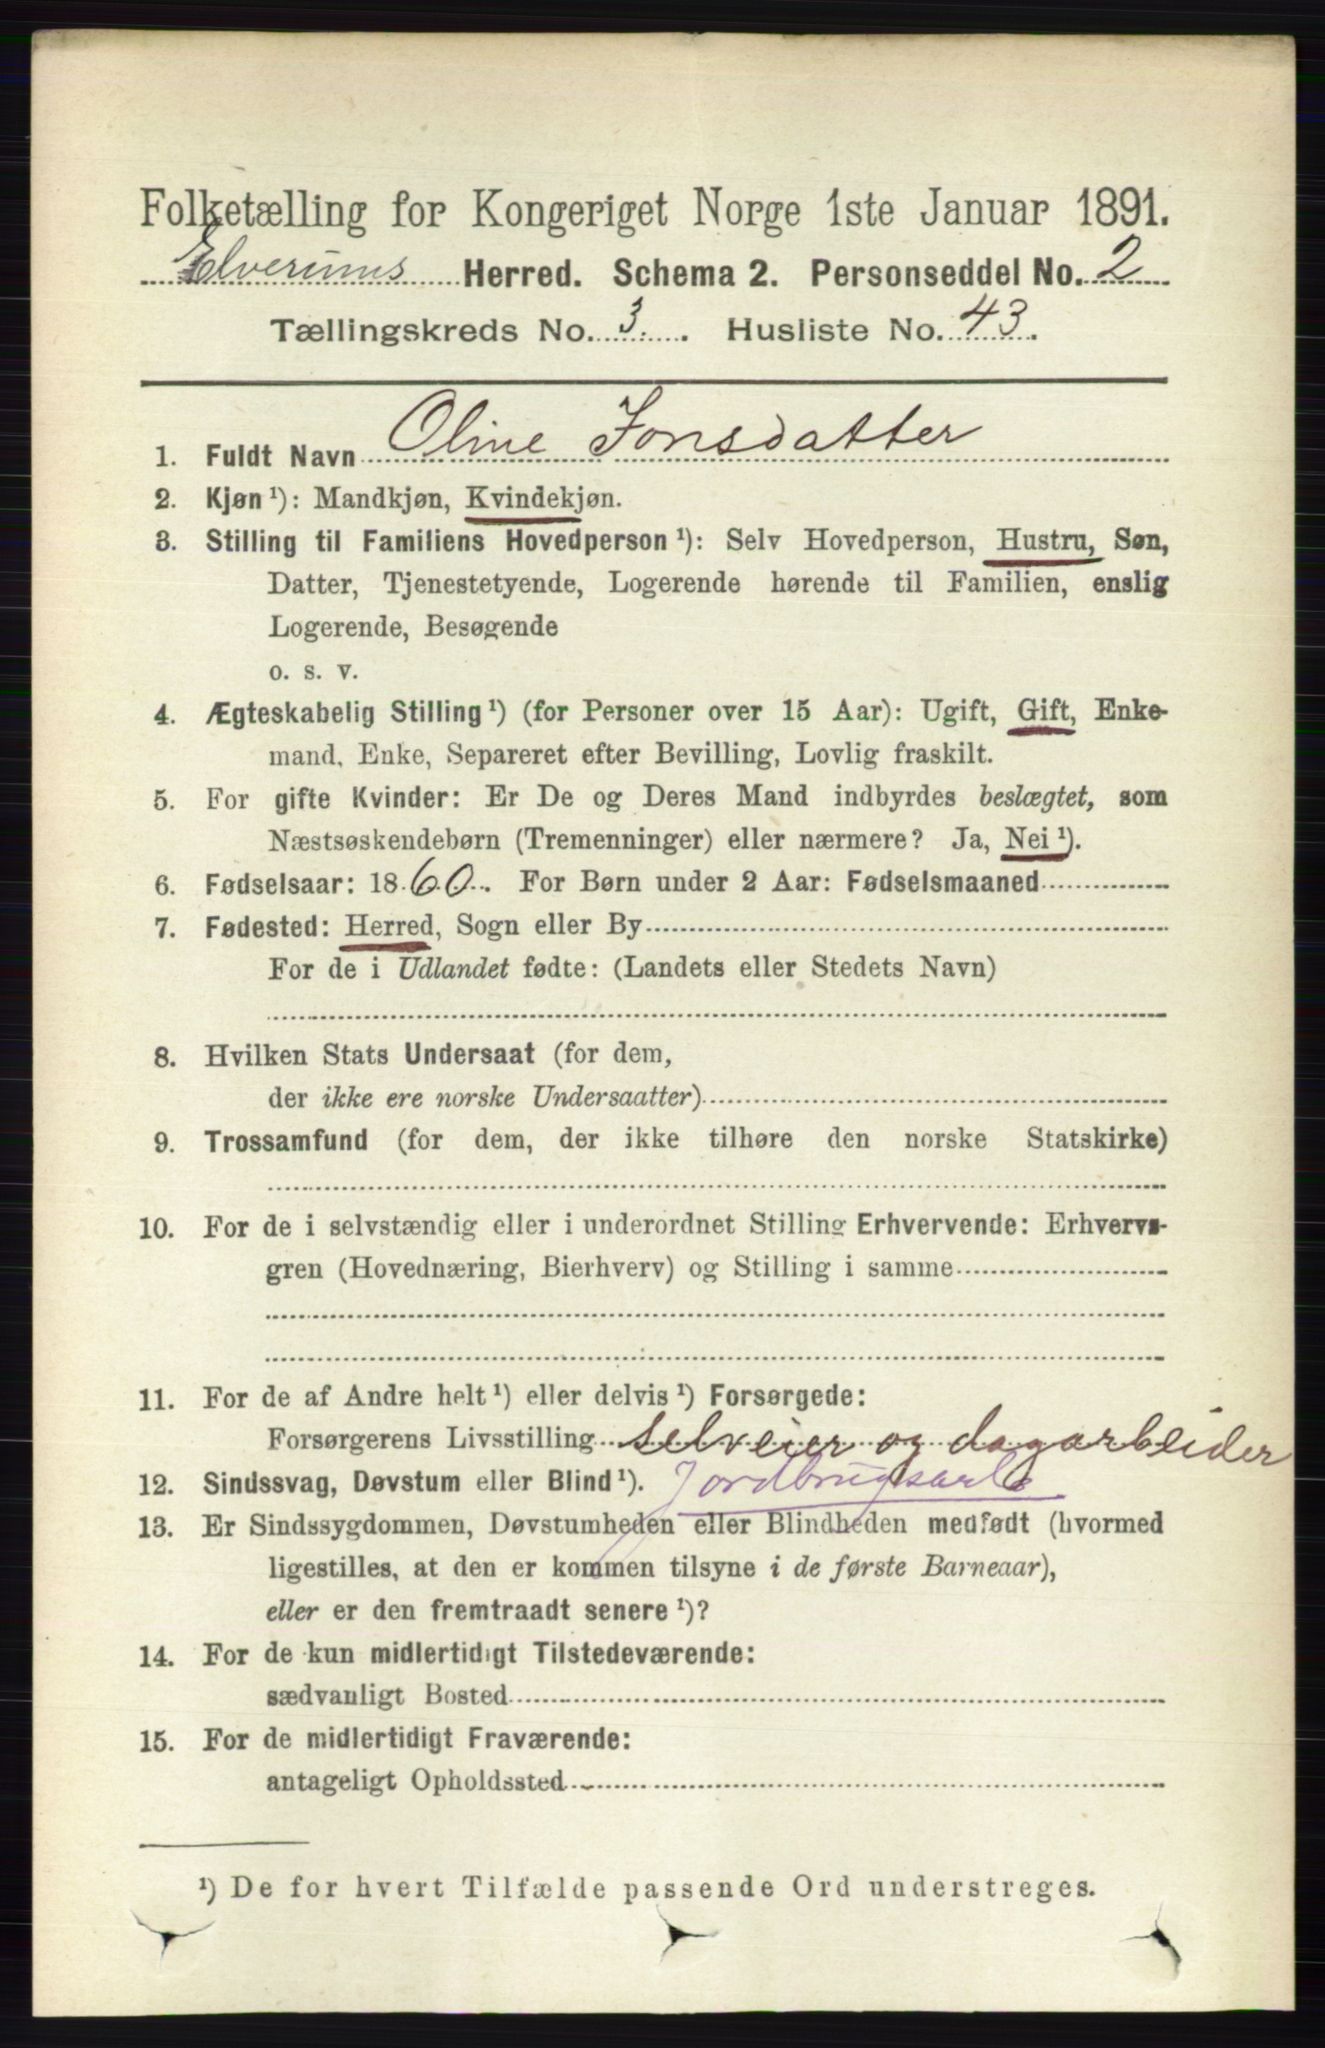 Folketælling for Kongeriget Norge 1ste Januar 1891.
Elverums Herred. Schema 2. Personseddel No. 2
Tællingskreds No. 3. Husliste No. 43.
1. Fuldt Navn Oline Jonsdatter
2. Kjøn ¹): Mandkjøn, Kvindekjøn.
3. Stilling til Familiens Hovedperson ¹): Selv Hovedperson, Hustru, Søn,
Datter, Tjenestetyende, Logerende hørende til Familien, enslig
Logerende, Besøgende
o. s. v.
4. Ægteskabelig Stilling ¹) (for Personer over 15 Aar): Ugift, Gift, Enke-
mand, Enke, Separeret efter Bevilling, Lovlig fraskilt.
5. For gifte Kvinder: Er De og Deres Mand indbyrdes beslægtet, som
Næstsøskendebørn (Tremenninger) eller nærmere? Ja, Nei ¹).
6. Fødselsaar: 1860. For Børn under 2 Aar: Fødselsmaaned
7. Fødested: Herred, Sogn eller By
For de i Udlandet fødte: (Landets eller Stedets Navn)
8. Hvilken Stats Undersaat (for dem,
der ikke ere norske Undersaatter)
9. Trossamfund (for dem, der ikke tilhøre den norske Statskirke)
10. For de i selvstændig eller i underordnet Stilling Erhvervende: Erhvervs-
gren (Hovednæring, Bierhverv) og Stilling i samme
11. For de af Andre helt ¹) eller delvis ¹) Forsørgede:
Forsørgerens Livsstilling selveier og dagarbeider
12. Sindssvag, Døvstum eller Blind ¹). Jordbrugsarb
13. Er Sindssygdommen, Døvstumheden eller Blindheden medfødt (hvormed
ligestilles, at den er kommen tilsyne i de første Barneaar),
eller er den fremtraadt senere ¹)?
14. For de kun midlertidigt Tilstedeværende:
sædvanligt Bosted
15. For de midlertidigt Fraværende:
antageligt Opholdssted
¹) De for hvert Tilfælde passende Ord understreges.